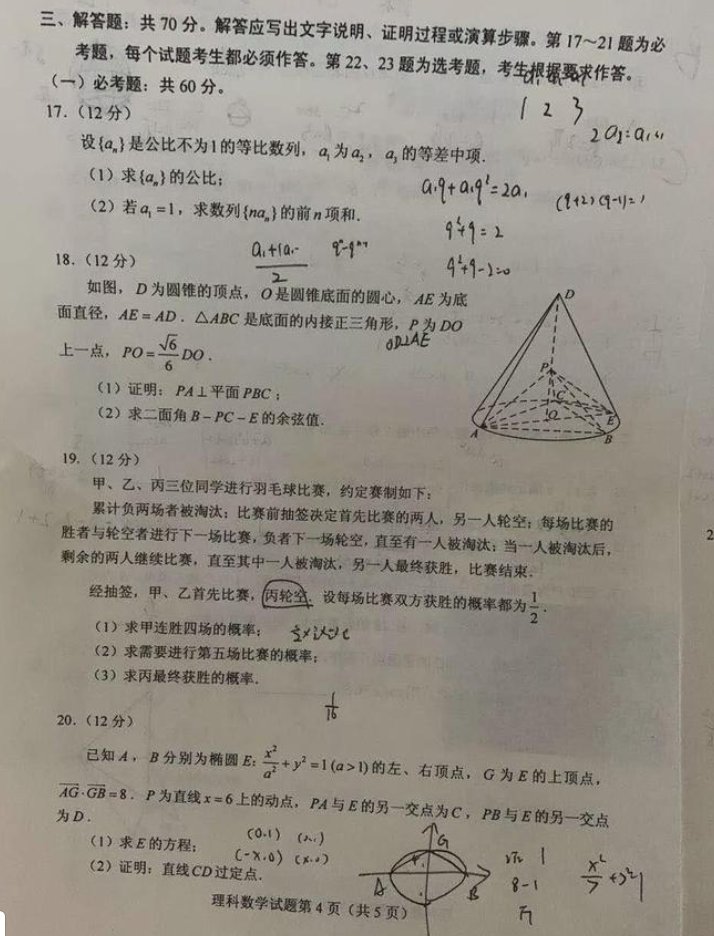 三、解答题：共 70 分。解答应写出文字说明、证明过程或演算步骤。第 17～21 题为必
考题，每个试题考生都必须作答。第 22、23 题为选考题，考生根据要求作答。
（一）必考题：共 60 分。
17.（12 分）
1 2 3
设{aₙ}是公比不为1的等比数列，a₁为a₂，a₃的等差中项.
（1）求{aₙ}的公比；
a₁q+a₁q²=2a₁
（2）若a₁=1，求数列{naₙ}的前n项和.
q²+q=2
18.（12 分）
q²+q-2=0
如图，D为圆锥的顶点，O是圆锥底面的圆心，AE为底
面直径，AE=AD．△ABC是底面的内接正三角形，P为DO
OD⊥AE
上一点，PO=√6/6 DO．
（1）证明：PA⊥平面PBC；
（2）求二面角B-PC-E的余弦值.
D
P
C
O
E
A
B
19.（12 分）
甲、乙、丙三位同学进行羽毛球比赛，约定赛制如下：
累计负两场者被淘汰；比赛前抽签决定首先比赛的两人，另一人轮空；每场比赛的
胜者与轮空者进行下一场比赛，负者下一场轮空，直至有一人被淘汰；当一人被淘汰后，
剩余的两人继续比赛，直至其中一人被淘汰，另一人最终获胜，比赛结束.
经抽签，甲、乙首先比赛，丙轮空．设每场比赛双方获胜的概率都为1/2．
（1）求甲连胜四场的概率；
（2）求需要进行第五场比赛的概率；
（3）求丙最终获胜的概率.
1/16
20.（12 分）
已知A，B分别为椭圆E：x²/a²+y²=1(a>1)的左、右顶点，G为E的上顶点，
AG·GB=8．P为直线x=6上的动点，PA与E的另一交点为C，PB与E的另一交点
为D．
（1）求E的方程；
(0,1)
（2）证明：直线CD过定点.
(-x,0) (x,0)
G
A
B
8-1
理科数学试题第 4 页（共 5 页）